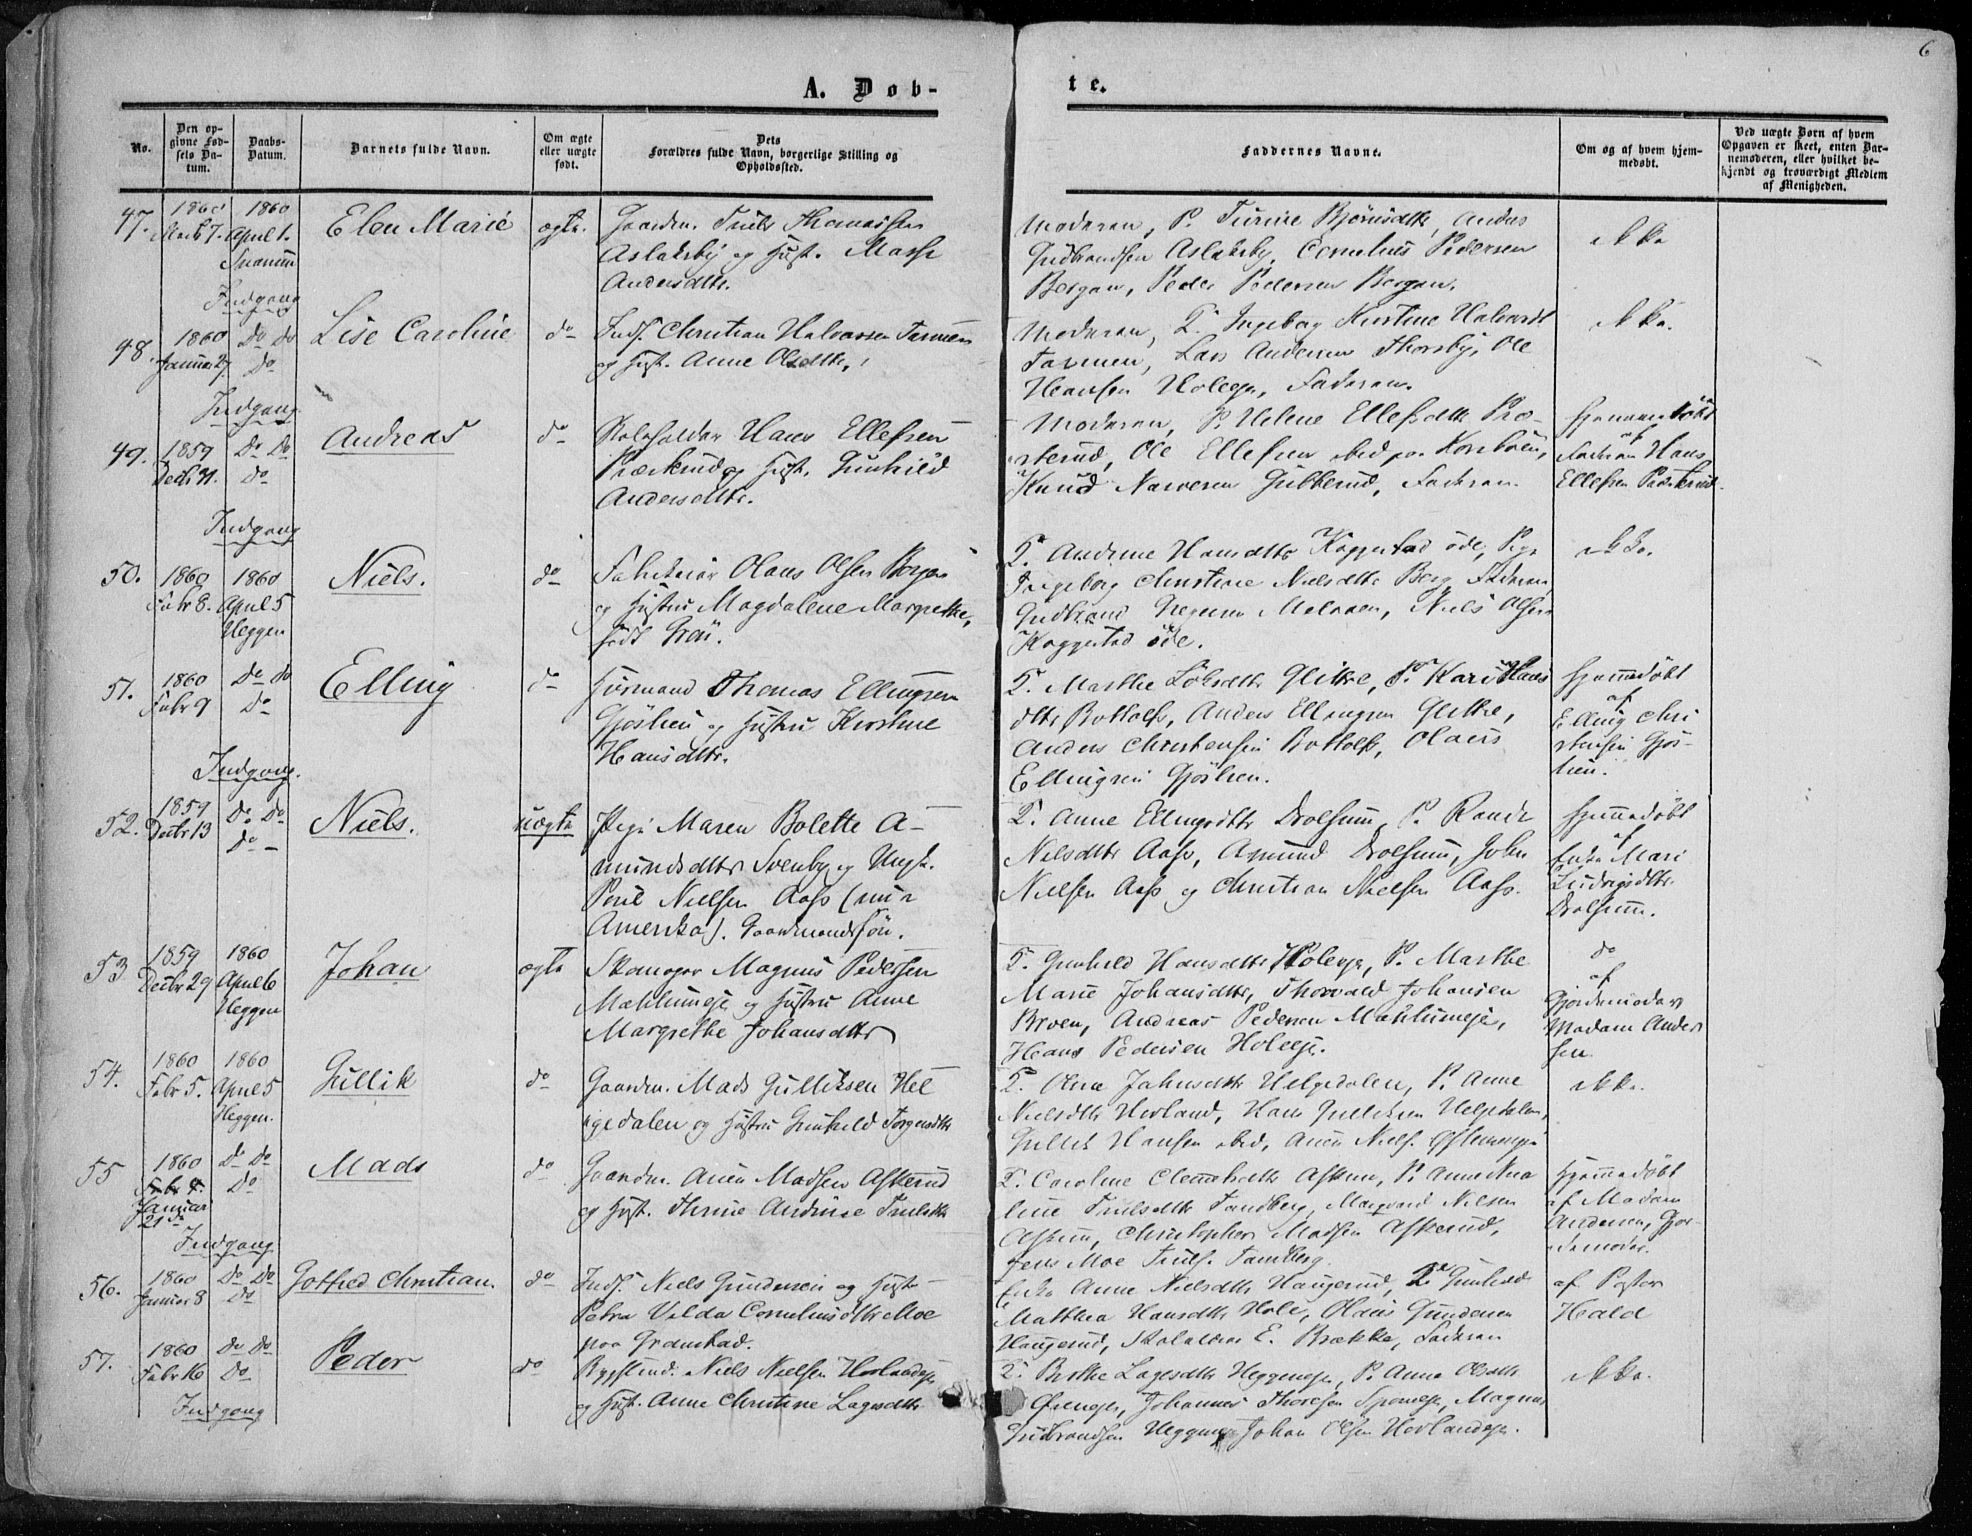 6
A. Døb-
te.
No.
Den opgivne Fødsels Datum.
Daabs-Datum.
Barnets fulde Navn.
Om ægte eller uægte født.
Dets Forældres fulde Navn, borgerlige Stilling og Opholdssted.
Faddernes Navne.
Om og af hvem hjemmedøbt.
Ved uægte Børn af hvem Opgaven er skeet, enten Barnemoderen, eller hvilket bekjendt og troværdigt Medlem af Menigheden.
47.
1860
Marts 7.
1860
April 1.
Snarum
Indgang
Elen Marie
ægte.
Gaardm. Truls Thomassen
Aslaksby og Hust. Marthe
Andersdttr.
Moderen, P. Turine Bjørnsdttr, Anders
Gudbrandsen Aslaksby, Cornelius Pedersen
Bergan, Peder Pedersen Bergan.
ikke
48.
1860
Januar 27.
Do Do
Do
Indgang
Lise Caroline
do
Inds. Christian Halvorsen
og Hust. Anne Olsdttr.
Moderen, P. Ingeborg Kirstine Halvorsd
Lars Andersen Thorsby, Ole
Hansen Holeeje, Faderen.
ikke.
49.
1859
Decbr 31.
Do Do
do
Indgang
Andreas
do
Skoleholder Hans Ellefsen
Præsterud og Hust. Gunhild
Andersdttr.
Moderen, P. Helene Ellefsdttr Præ-
sterud, Ole Ellefsen
Knud Narvesen Gubberud, Faderen.
hjemmedøbt
af
Faderen Hans
Ellefsen Præsterud.
50.
1860
Febr 8.
1860
April 5
Heggen
Niels.
do
Olaus Olsen Bergan
og Hustru Magdalene Margrethe,
født Grøn.
P. Andrine Hansdttr Kaggestad øde, Pige
Ingeborg Christine Nielsdttr Berg, Faderen
Gudbrand Melaaen, Niels Olsen
Kaggestad øde.
ikke.
51.
1860
Febr 9
Do do
Do
Indgang.
Elling
do
Huusmand Thomas Ellingsen
Gjøslien og Hustru Kirstine
Hansdttr.
P. Marthe Glitre, P. Kari Hans
dttr Bottolfs, Anders Ellingsen Glitre,
Anders Christensen Bottolfs, Olaus
Ellingsen Gjøslien.
hjemmedøbt
af
Elling Chri
stensen Gjøs-
lien.
52.
1859
Decbr 13
Do Do
do
Niels.
uægte
Pige Maren Bolette A-
mundsdttr Svenby og Ungk.
Poul Nielsen Aass (nu i
Amerika). Gaardmandssøn.
P. Anne Ellingsdttr Drolsum, P. Randi
Nielsdttr Aass, Amund Drolsum, John
Nielsen Aass og Christian Nielsen Aass.
hjemmedøbt
af
Enke Mari
Ludvigsdttr.
Drolsum.
53
1859
Decbr 29
1860
April 6
Heggen
Johan
ægte
Skomager Magnus Pedersen
Mæhlumeje og Hustru Anne
Margrethe Johansdttr
P. Gunhild Hansdttr Holeeje, P. Marthe
Marie Johansdttr, Thorvald Johansen
Braaen, Andreas Pedersen Mæhlumeje,
Hans Pedersen Holeeje.
do
af
Gjordemoder
Madam Ander
sen.
54.
1860
Febr 5.
1860
April 5
Heggen.
Gullik
do
Gaardm. Mads Gulliksen Hel
gedalen og Hustru Gunhild Torgersdttr
P. Olea Johnsdttr Helgedalen, P. Anne
Nielsdttr Hovland, Hans Gulliksen Helgedalen,
Gullik Hansen
ikke.
55
1860
Febr 4.
Januar
21de
Do Do
Do
Indgang
Mads
do
Gaardm. Aren Madsen Askerud
og Hust. Thrine Andrine Trulsdttr
P. Caroline Askim, P. Anne
line Trulsdttr Tandberg, Margvard Nielsen
Askim, Christopher Madsen Askerud,
Jens Moe Truls. Tandberg.
Hjemmedøbt
af Madam
Andersen, Gjor-
demoder.
56.
1860
Januar 8
Do Do
Do
Gotfred Christian.
do
Inds. Niels Gundersen og Hust
Petra Valda Corneliusdttr Moe
paa Grønstad.
Enke Anne Nielsdttr Haugerud, P. Gunhild
Mathea Hansdttr Hole, Olaus Gundersen
Haugerud, Skolelærer E. Brække, Faderen
af Pastor
Hald
57.
1860
Febr 16
Do Do
Do
Indgang
Peder
do
Niels Nielsen Hovlandeje
og Hust. Anne Christine Lagesdttr
P. Berthe Lagesdttr Heggeneje, P. Anne Olsdttr
Johannes Thoresen Magnus
Gudbrandsen Heggeneje, Johan Olsen Hovlandeje.
ikke.